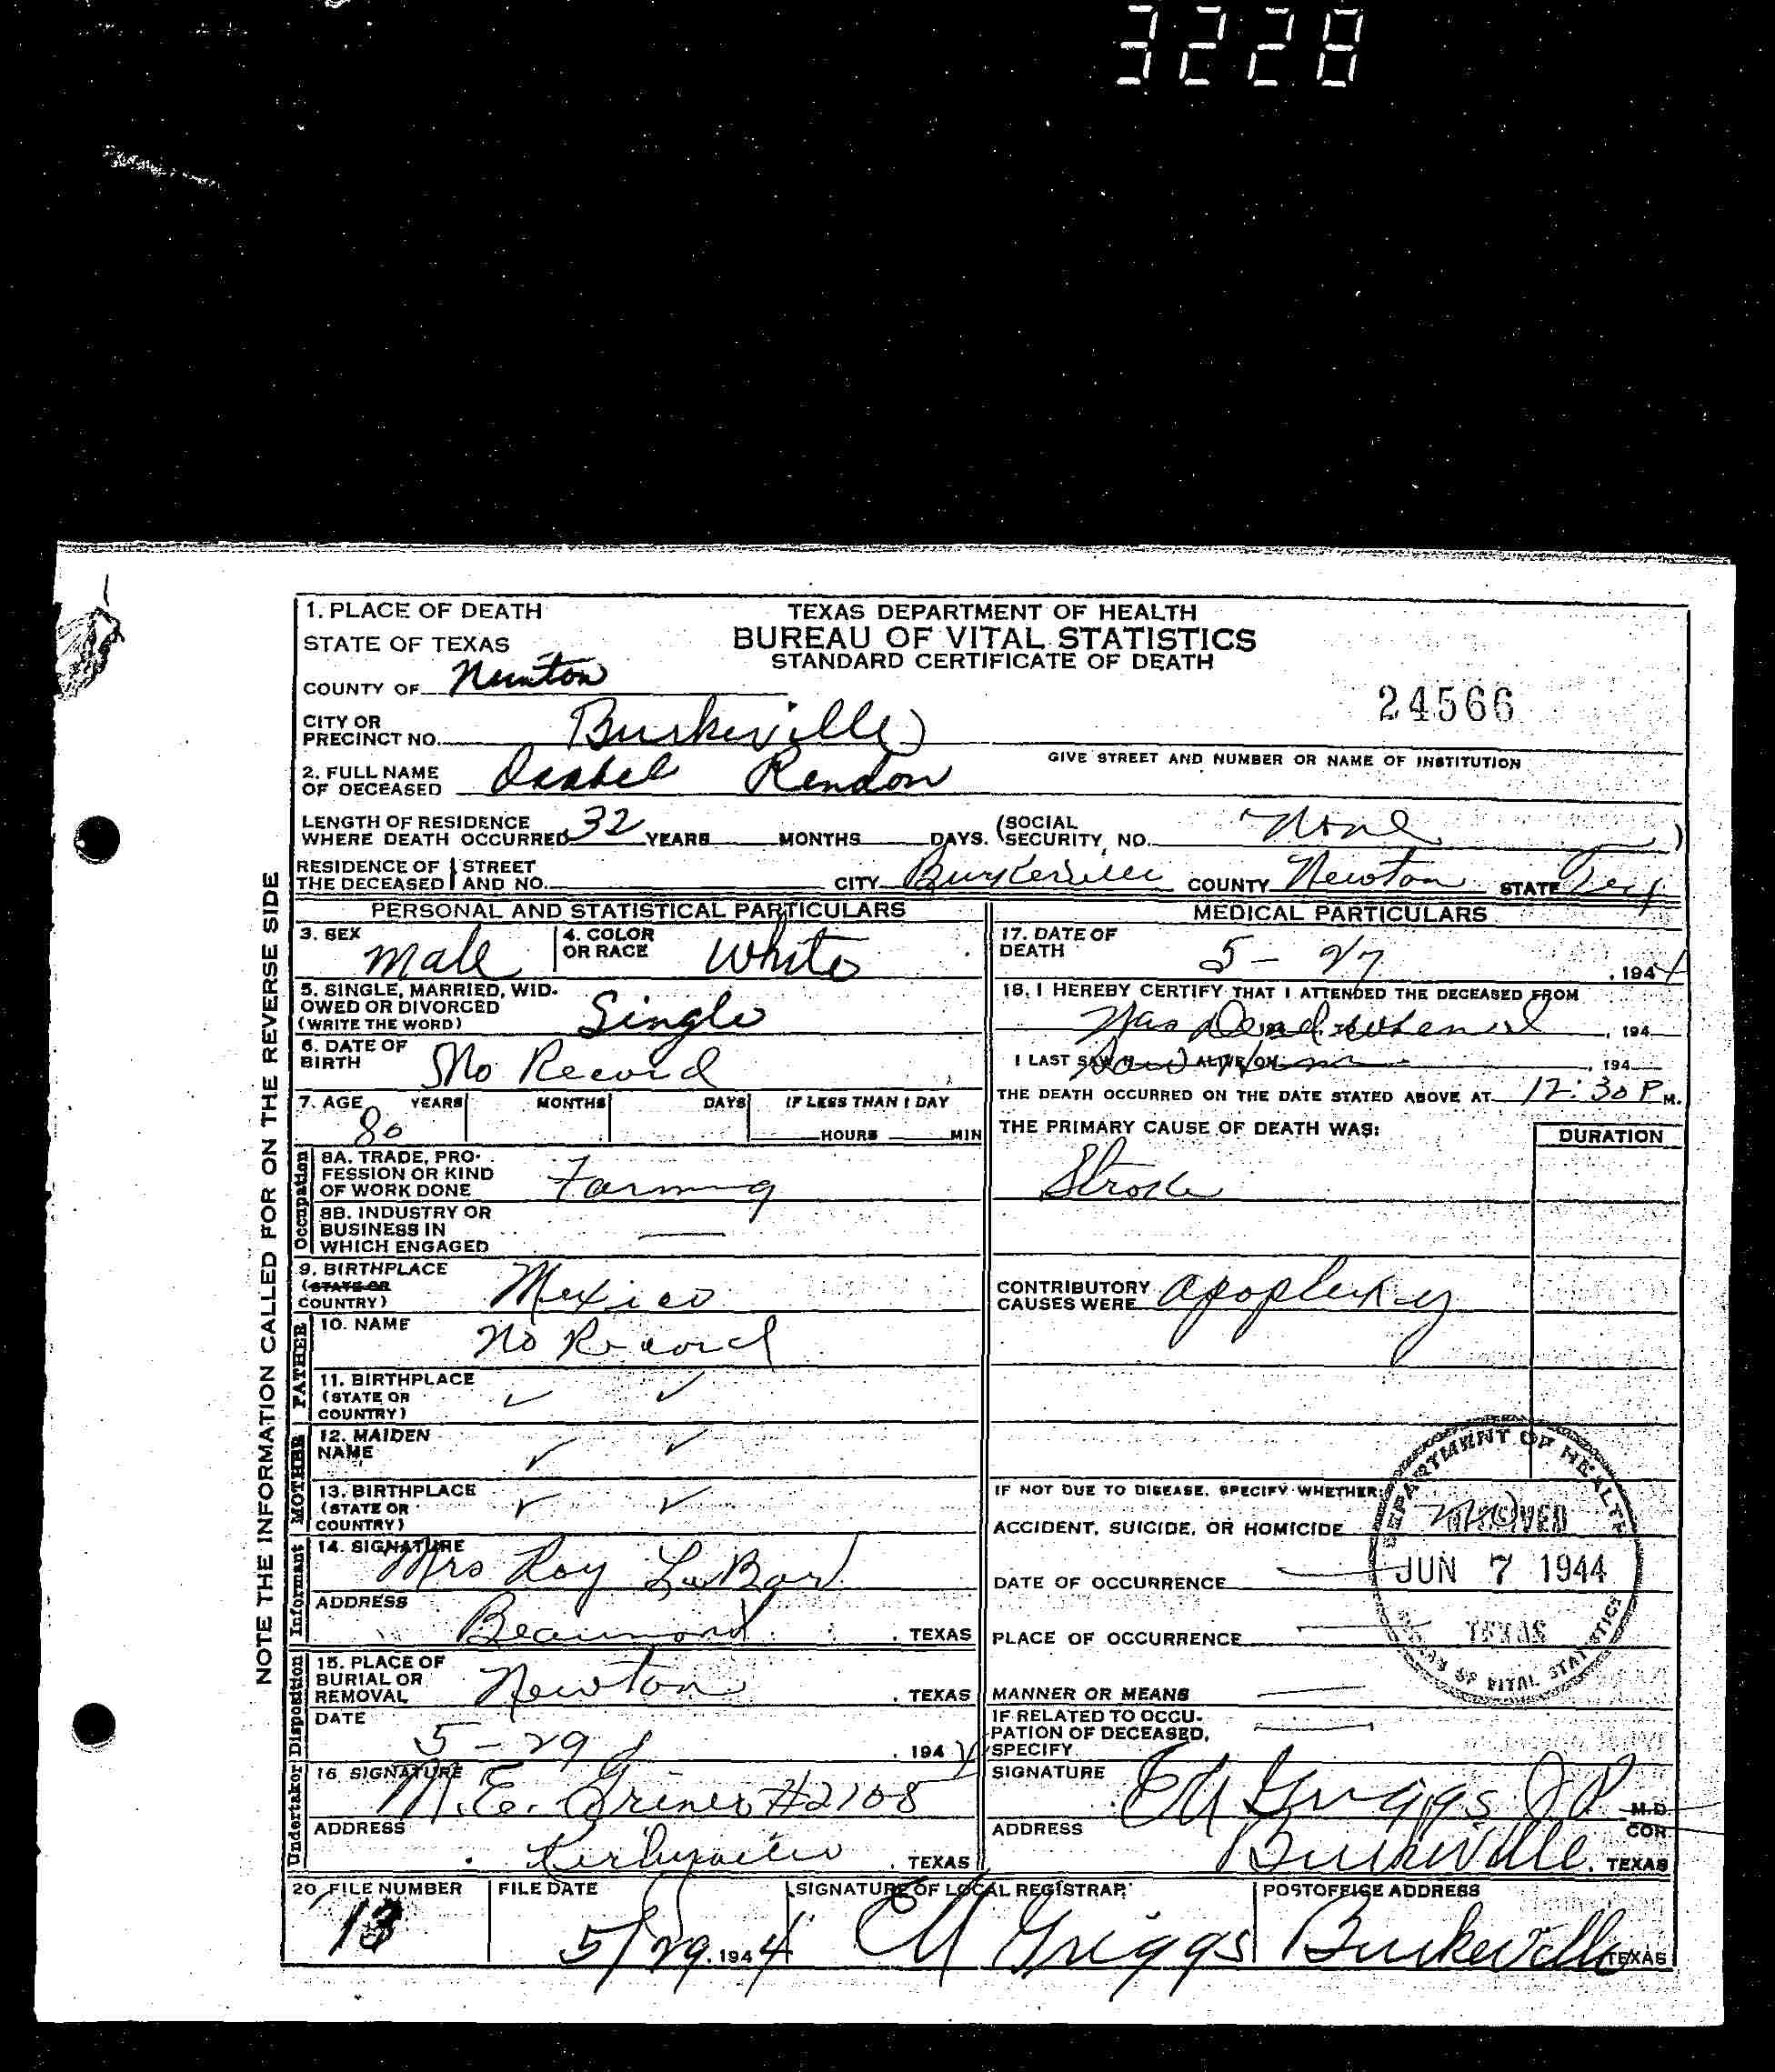 3228
1. PLACE OF DEATH
TEXAS DEPARTMENT OF HEALTH
STATE OF TEXAS
BUREAU OF VITAL STATISTICS
STANDARD CERTIFICATE OF DEATH
COUNTY OF Newton
24566
CITY OR PRECINCT NO. Burkeville
GIVE STREET AND NUMBER OR NAME OF INSTITUTION
2. FULL NAME OF DECEASED Isabel Rendon
LENGTH OF RESIDENCE WHERE DEATH OCCURRED 32 YEARS MONTHS DAYS. (SOCIAL SECURITY NO. None )
RESIDENCE OF THE DECEASED STREET AND NO. CITY Burkeville COUNTY Newton STATE Tex
NOTE THE INFORMATION CALLED FOR ON THE REVERSE SIDE
PERSONAL AND STATISTICAL PARTICULARS
3. SEX Male 4. COLOR OR RACE White
5. SINGLE, MARRIED, WIDOWED OR DIVORCED (WRITE THE WORD) Single
6. DATE OF BIRTH No Record
7. AGE YEARS MONTHS DAYS IF LESS THAN 1 DAY
80 HOURS MIN
Occupation
8A. TRADE, PROFESSION OR KIND OF WORK DONE Farming
8B. INDUSTRY OR BUSINESS IN WHICH ENGAGED —
9. BIRTHPLACE (STATE OR COUNTRY) Mexico
FATHER
10. NAME No Record
11. BIRTHPLACE (STATE OR COUNTRY) ✓ ✓
MOTHER
12. MAIDEN NAME ✓ ✓
13. BIRTHPLACE (STATE OR COUNTRY) ✓ ✓
Informant
14. SIGNATURE Mrs Roy LaBar
ADDRESS Beaumont, TEXAS
Disposition
15. PLACE OF BURIAL OR REMOVAL Newton, TEXAS
DATE 5-29, 1944
Undertaker
16 SIGNATURE M.E. Griner #2108
ADDRESS Kirbyville, TEXAS
MEDICAL PARTICULARS
17. DATE OF DEATH 5-27, 1944
18. I HEREBY CERTIFY THAT I ATTENDED THE DECEASED FROM
Was Dead when I, 194
I LAST SAW H ALIVE ON Saw Him, 194
THE DEATH OCCURRED ON THE DATE STATED ABOVE AT 12:30 P M.
THE PRIMARY CAUSE OF DEATH WAS: DURATION
Stroke
CONTRIBUTORY CAUSES WERE apoplexy
IF NOT DUE TO DISEASE, SPECIFY WHETHER:
ACCIDENT, SUICIDE, OR HOMICIDE
DATE OF OCCURRENCE —
PLACE OF OCCURRENCE —
MANNER OR MEANS —
IF RELATED TO OCCUPATION OF DECEASED, SPECIFY —
DEPARTMENT OF HEALTH
RECEIVED
JUN 7 1944
TEXAS
BUREAU OF VITAL STATISTICS
SIGNATURE Ed Griggs J P M.D. COR
ADDRESS Burkeville, TEXAS
20 FILE NUMBER FILE DATE SIGNATURE OF LOCAL REGISTRAR POSTOFFICE ADDRESS
13 5/29, 1944 Ed Griggs Burkeville TEXAS